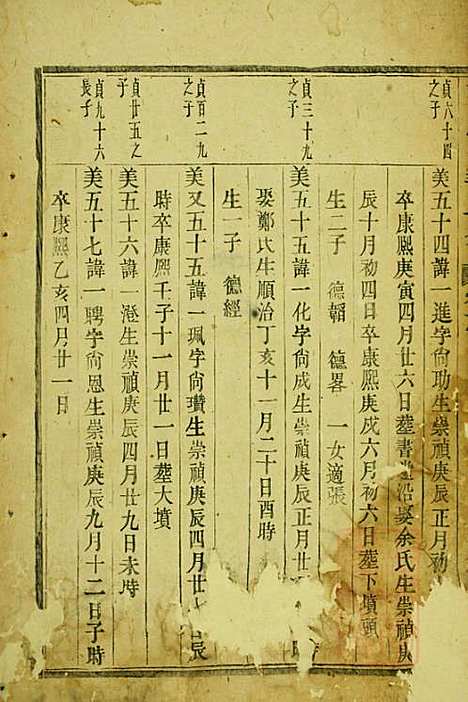 貞六十四
之子
美五十四諱一進字尙助生崇禎庚辰正月初
卒康熙庚寅四月廿六日塟書堂沿娶余氏生崇禎庚
辰十月初四日卒康熙庚戌六月初六日塟下墳頭
生二子 德韜 德畧 一女適張
貞三十九
之子
美五十五諱一化字尙成生崇禎庚辰正月廿
娶鄭氏生順治丁亥十一月二十日酉時
生一子 德經
貞百二九
之子
美又五十五諱一珮字尙瓚生崇禎庚辰四月廿 辰
時卒康熙壬子十一月廿一日塟大墳
貞廿五之
子
美五十六諱一澄生崇禎庚辰四月廿九日未時
貞九十六
長子
美五十七諱一聘字尙恩生崇禎庚辰九月十二日子時
卒康熙乙亥四月廿一日